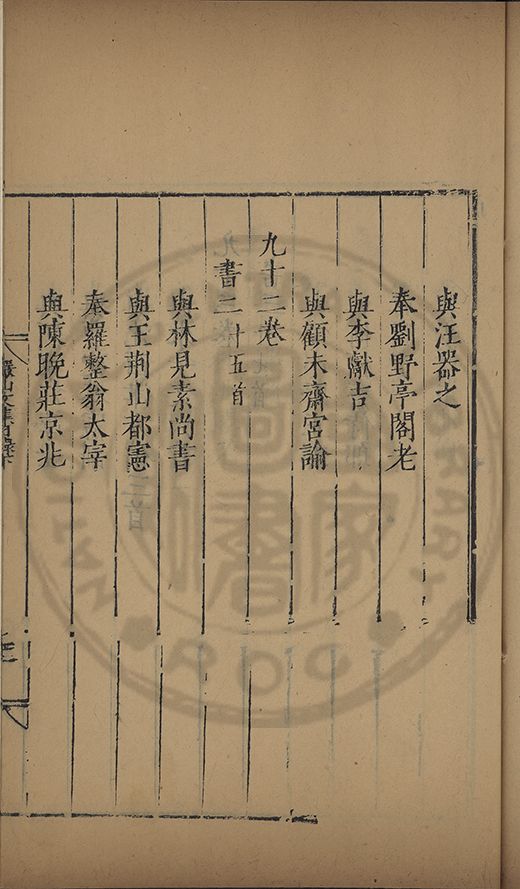 與汪器之
奉劉野亭閣老
與李獻吉
與顧未齋宮諭
九十二卷
書二十五首
與林見素尚書
與王荊山都憲
奉羅整翁太宰
與陳晚莊京兆